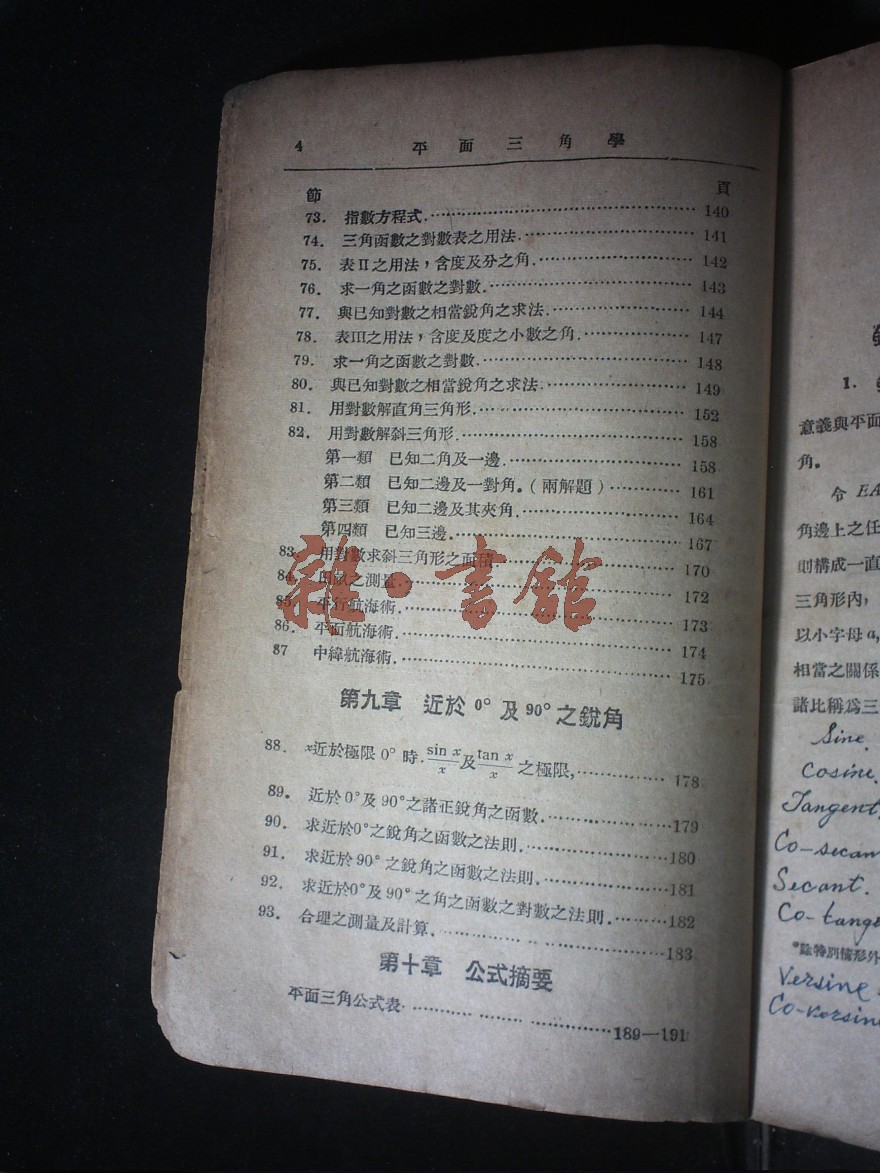 4 平面三角學
節 頁
73. 指數方程式 140
74. 三角函數之對數表之用法 141
75. 表II之用法，含度及分之角 142
76. 求一角之函數之對數 143
77. 與已知對數之相當銳角之求法 144
78. 表III之用法，含度及度之小數之角 147
79. 求一角之函數之對數 148
80. 與已知對數之相當銳角之求法 149
81. 用對數解直角三角形 152
82. 用對數解斜三角形 158
第一類 已知二角及一邊 158
第二類 已知二邊及一對角。(兩解題) 161
第三類 已知二邊及其夾角 164
第四類 已知三邊 167
83. 用對數求斜三角形之面積 170
84. 之測量 172
85. 平行航海術 173
86. 平面航海術 174
87 中緯航海術 175
雜·書館
第九章 近於 0° 及 90° 之銳角
88. x近於極限 0° 時. sin x/x 及 tan x/x 之極限, 178
89. 近於 0° 及 90° 之諸正銳角之函數 179
90. 求近於0°之銳角之函數之法則 180
91. 求近於 90° 之銳角之函數之法則 181
92. 求近於0°及 90° 之角之函數之對數之法則 182
93. 合理之測量及計算 183
第十章 公式摘要
平面三角公式表 189—191
1.
意義與平面
角。
令 EA
角邊上之任
則構成一直
三角形內，
以小字母 a,
相當之關係
諸比稱爲三
Sine.
Cosine.
Tangent.
Co-secan
Secant.
Co-tange
*除特別情形外
Versine
Co-versine